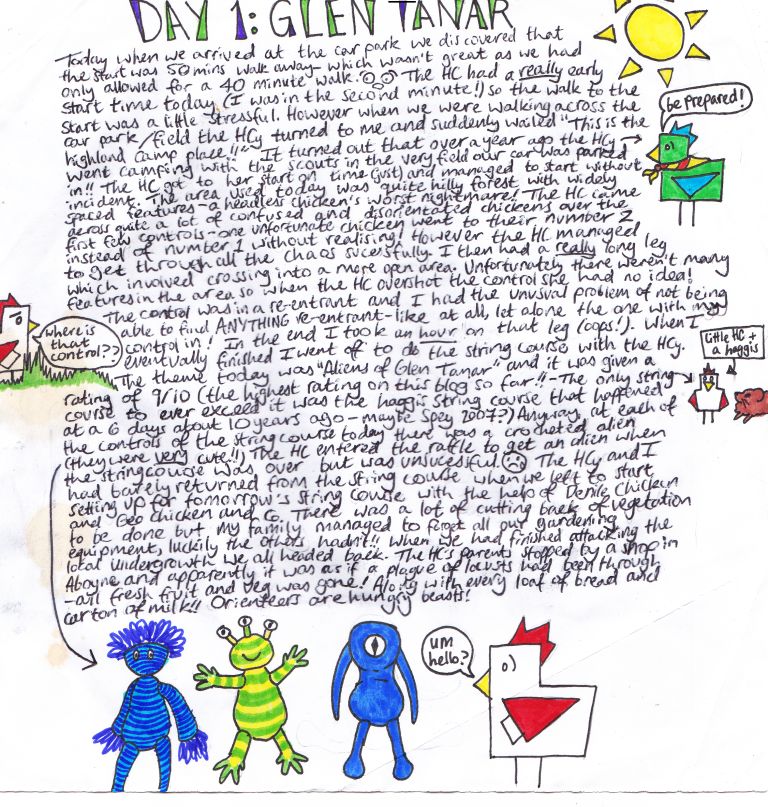 DAY 1: GLEN TANAR
Today when we arrived at the car park we discovered that
the start was 50 mins walk away - which wasn't great as we had
only allowed for a 40 minute walk. The HC had a really early
start time today (I was in the second minute!) so the walk to the
start was a little stressful. However when we were walking across the
car park/field the HCy turned to me and suddenly wailed "This is the
highland camp place!!" It turned out that over a year ago the HCy
went camping with the scouts in the very field our car was parked
in!! The HC got to her start on time (just) and managed to start without
incident. The area used today was quite hilly forest with widely
spaced features - a headless chicken's worst nightmare! The HC came
across quite a lot of confused and disorientated chickens over the
first few controls - one unfortunate chicken went to their number 2
instead of number 1 without realising! However the HC managed
to get through all the chaos sucessfully. I then had a really long leg
which involved crossing into a more open area. Unfortunately there weren't many
features in the area so when the HC overshot the control she had no idea!
The control was in a re-entrant and I had the unusual problem of not being
able to find ANYTHING re-entrant-like at all, let alone the one with my
control in! In the end I took an hour on that leg (oops!). When I
eventually finished I went off to do the string course with the HCy.
The theme today was "Aliens of Glen Tanar" and it was given a
rating of 9/10 (the highest rating on this blog so far!! - The only string
course to ever exceed it was the haggis string course that happened
at a 6 days about 10 years ago - maybe Spey 2007?) Anyway, at each of
the controls of the string course today there was a crocheted alien
(they were very cute!!) The HC entered the raffle to get an alien when
the string course was over but was unsucessful. The HCy and I
had barely returned from the string course when we left to start
setting up for tomorrow's string course with the help of Denile Chicken
and Geo Chicken and Co. There was a lot of cutting back of vegetation
to be done but my family managed to forget all our gardening
equipment, luckily the others hadn't!! When we had finished attacking the
local undergrowth we all headed back. The HC's parents stopped by a shop in
Aboyne and apparently it was as if a plague of locusts had been through
- all fresh fruit and veg was gone! Along with every loaf of bread and
carton of milk!! Orienteers are hungry beasts!
be prepared!
where is
that
control??
little HC +
a haggis
um
hello?